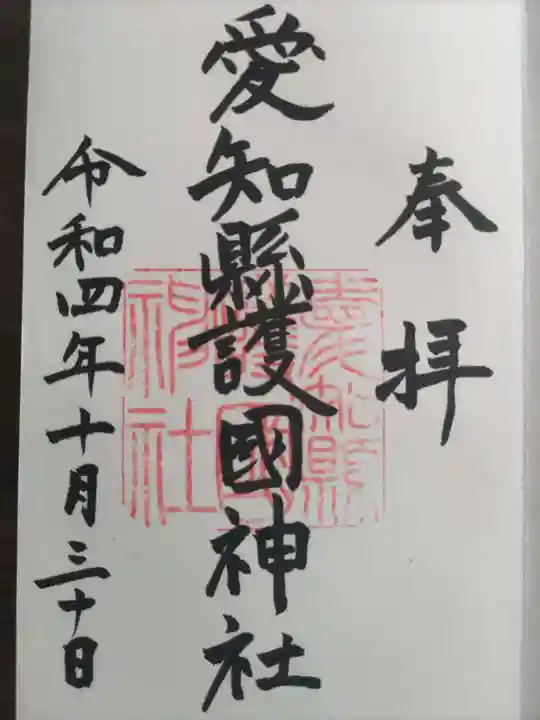 奉拝
愛知縣護國神社
令和四年十月三十日
愛知縣
護國
神社